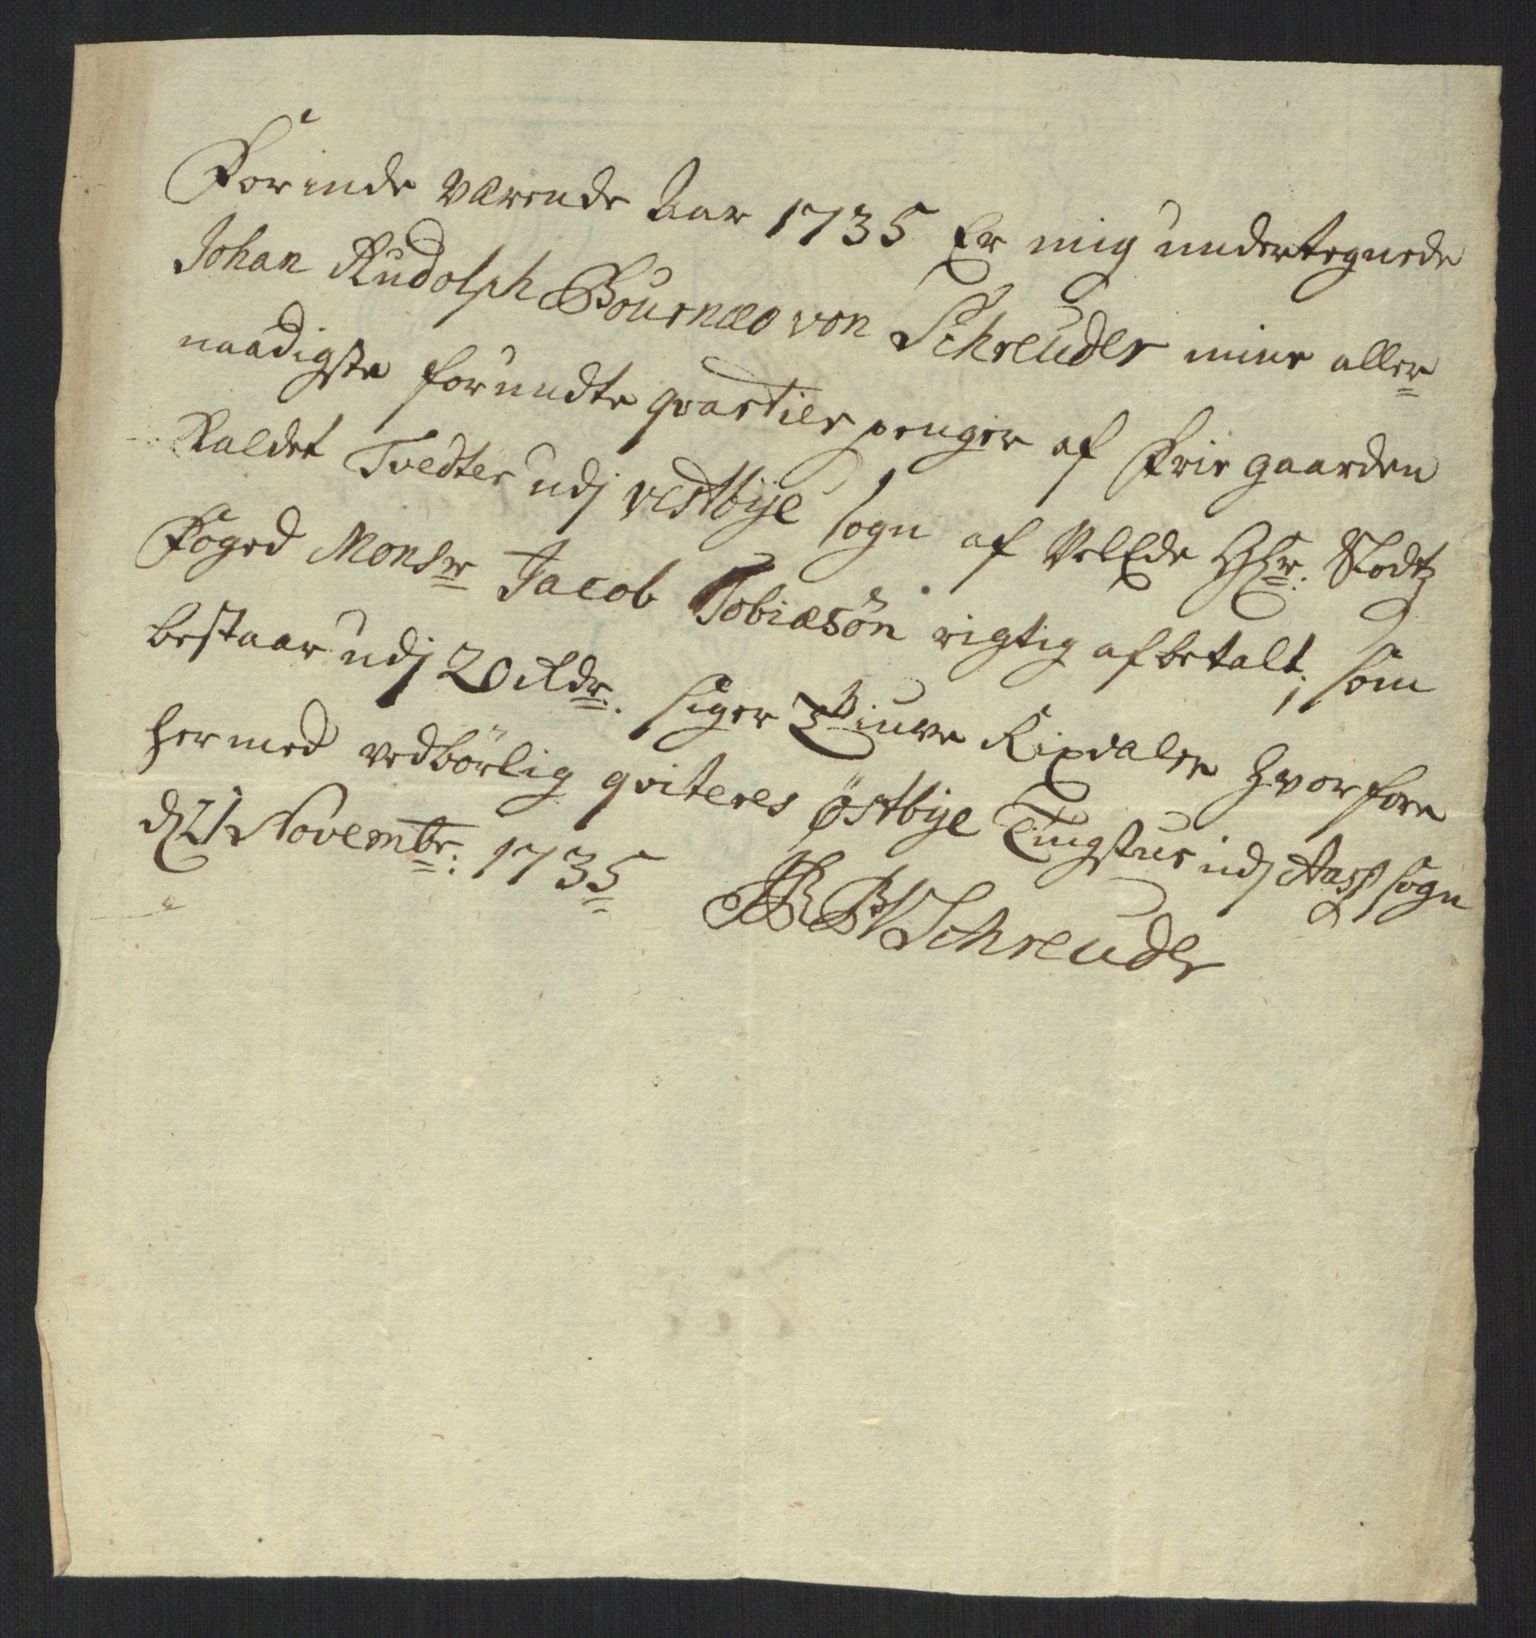 For inde Værende Aar 1735 Er mig undertegnede
Johan Rudolph Bournæo von Schreuder mine aller
naadigste forundte qvartier penger af frie gaarden
Kaldet Tvedter udj vestbÿe sogn af VelEde Hr. Slodtz
Foged Monsr Jacob Tobiæsøn rigtig afbetalt; som
bestaar udj 20 Rdr. siger Tiuve Rixdaler hvorfore
hermed vedbörlig qviteres østbÿe Tingstue udj Aass sogn
d 21 Novembr: 1735 JRBVSchreuder